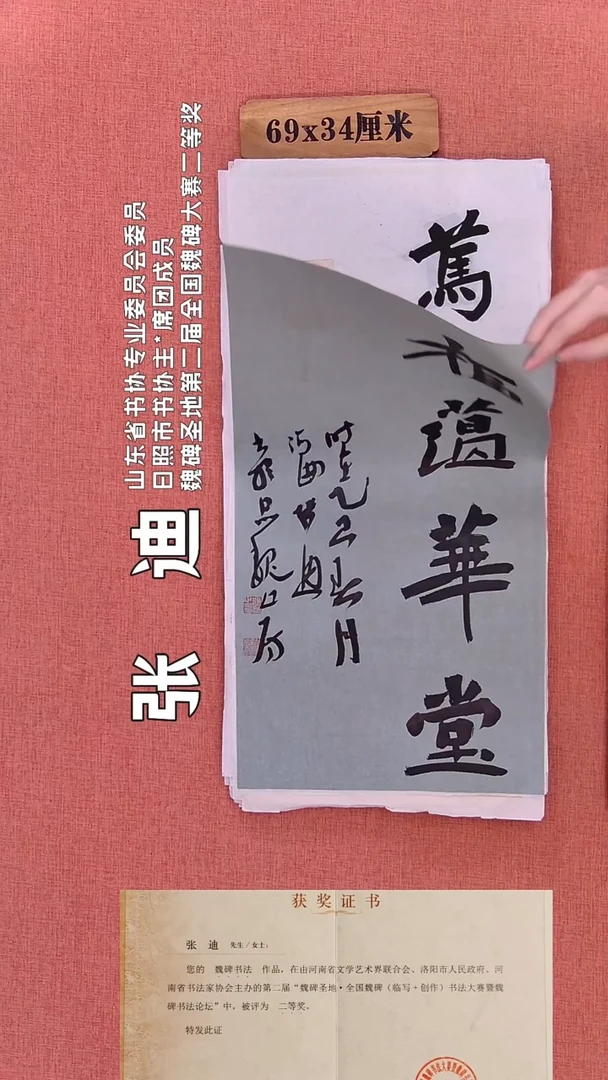 69x34厘米
山东省书协专业委员会委员
日照市书协主*席团成员
魏碑圣地第二届全国魏碑大赛二等奖
张 迪
華堂
时在乙巳春月
获奖证书
张 迪 先生/女士:
您的 魏碑书法 作品,在由河南省文学艺术界联合会、洛阳市人民政府、河
南省书法家协会主办的第二届“魏碑圣地·全国魏碑(临写+创作)书法大赛暨魏
碑书法论坛”中,被评为 二等奖。
特发此证